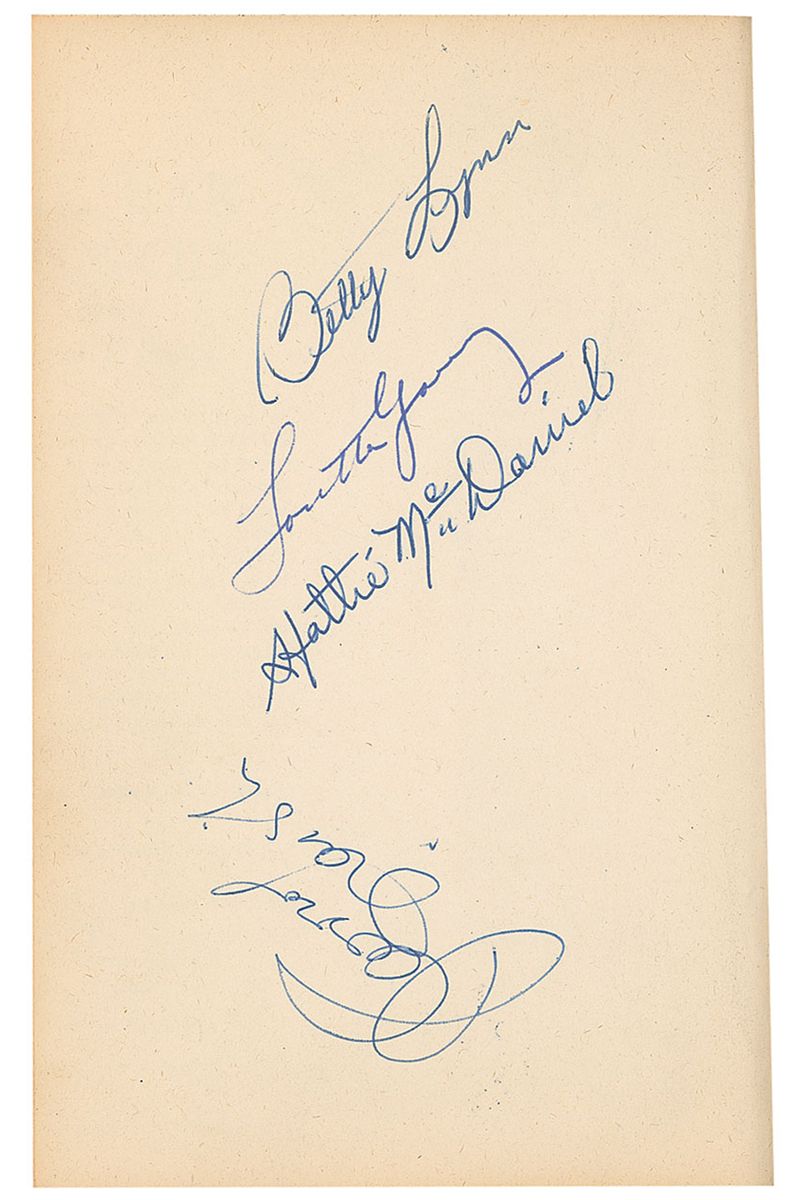 Betty Lynn
Loretta Young
Hattie McDaniel
Dennis